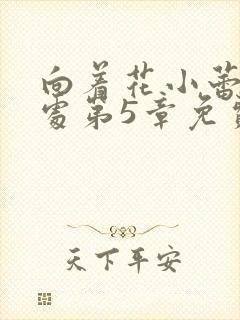 向着花小蕾
处第5章免费
天下平安